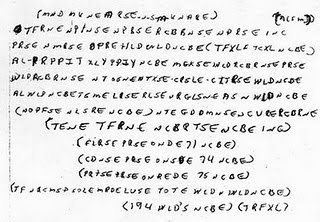 (MND MKNEARSE-N-S-M-KNARE) (ACSM)
TFRNE NPTNSE NPBSE RCBRNSE NPRSE INC
PRSE NMRSE OPREHLDWLD NCBE (TFXLF TCXL NCBE)
AL-PRPPIT XLY PPIY NCBE MGKSE WLD RCBRNSE PRSE
WLD RCBRNSE NT SSNENTXSE-CRSLE-CITRSE WLD NCBE
ALWLP NCBE TSME LRSE RLSE URGLSNE AS N WLD NCBE
(NOPFSE NLSRE NCBE) NTEGDDMNSENCURERCBRNE
(TENE TFRNE NCBRTSE NCBE INC)
(FIRSE PRSE ONDE 71 NCBE)
(CDNSE PRSE ONSDE 74 NCBE)
(PRTSE PRSE ONREDE 75 NCBE)
(TFNBCMSP SOLE MRDE LUSE TOTE WLD N WLD NCBE)
(194 WLD'S NCBE) (TRFXL)